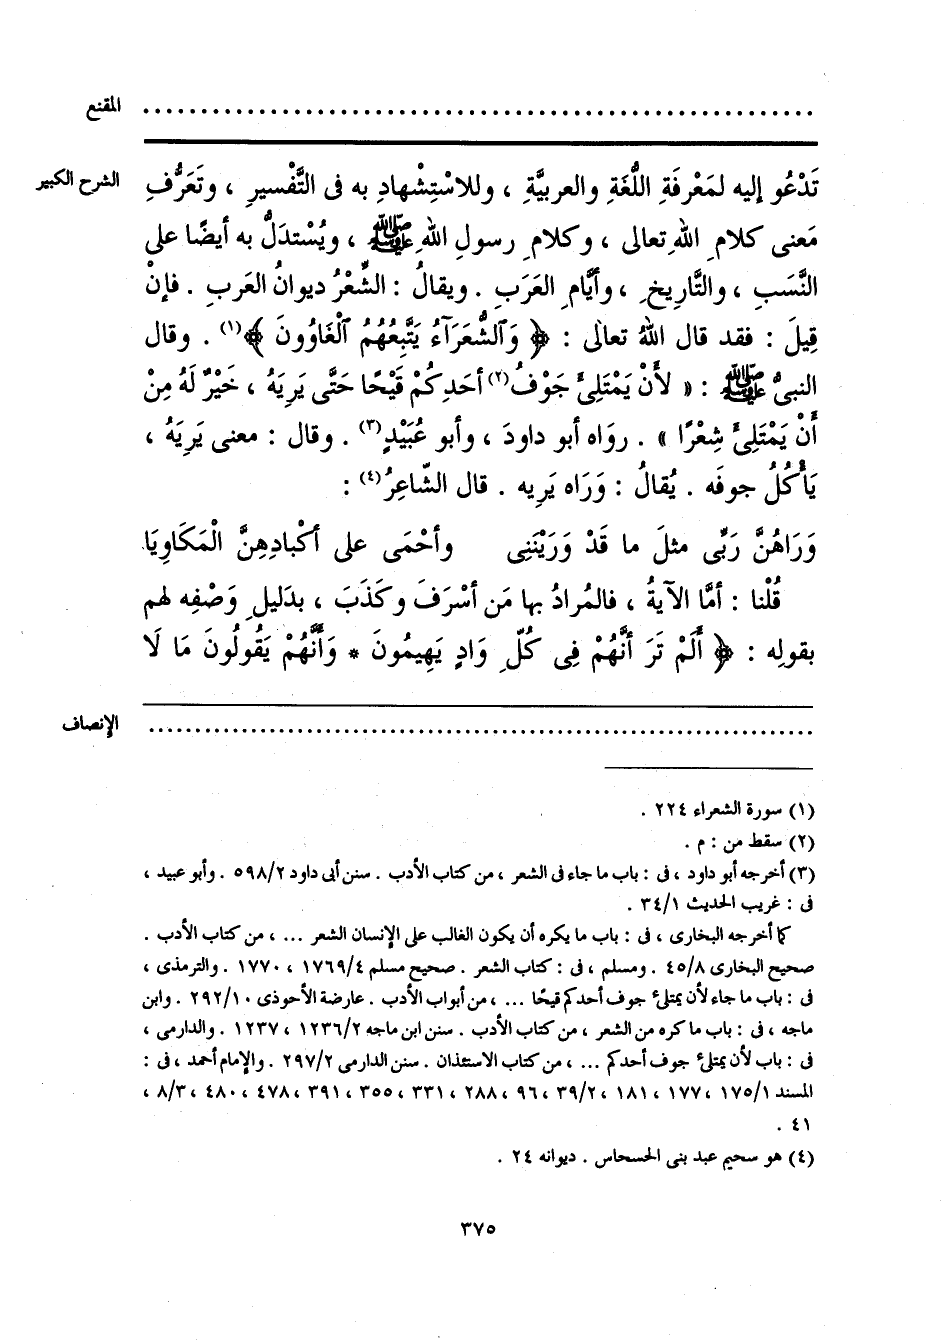 المقنع ........................................................
الشرح الكبير
تَدْعُو إليه لمَعْرِفَةِ اللُّغَةِ والعربيَّةِ ، وللاسْتِشْهادِ به فى التَّفْسيرِ ، وتَعَرُّفِ
مَعنى كلامِ اللهِ تعالى ، وكلامِ رسولِ اللهِ ﷺ ، ويُسْتدَلُّ به أيضًا على
النَّسَبِ ، والتَّاريخِ ، وأيَّامِ العَرَبِ . ويقالُ : الشِّعْرُ ديوانُ العَربِ . فإنْ
قِيلَ : فقد قال اللهُ تعالى : ﴿ وَٱلشُّعَرَآءُ يَتَّبِعُهُمُ ٱلْغَاوُونَ ﴾(١) . وقال
النبىُّ ﷺ : « لأَنْ يَمْتَلِئَ جَوْفُ(٢) أحَدِكُمْ قَيْحًا حَتَّى يَرِيَهُ ، خَيْرٌ لَهُ مِنْ
أَنْ يَمْتَلِئَ شِعْرًا » . رَوَاه أبو داودَ ، وأبو عُبَيْدٍ(٣) . وقال : معنى يَرِيَهُ ،
يَأْكُلُ جوفَه . يُقالُ : وَرَاه يَرِيه . قال الشّاعِرُ(٤) :
وَرَاهُنَّ رَبِّى مثلَ ما قَدْ وَرَيْنَنِى وأحْمَى على أكْبادِهِنَّ الْمَكَاوِيَا
قُلْنا : أمَّا الآيةُ ، فالمُرادُ بها مَن أسْرَفَ وكَذَبَ ، بدَليلِ وَصْفِه لهم
بقولِه : ﴿ أَلَمْ تَرَ أَنَّهُمْ فِى كُلِّ وَادٍ يَهِيمُونَ * وَأَنَّهُمْ يَقُولُونَ مَا لَا
الإنصاف ........................................................
(١) سورة الشعراء ٢٢٤ .
(٢) سقط من : م .
(٣) أخرجه أبو داود ، فى : باب ما جاء فى الشعر ، من كتاب الأدب . سنن أبى داود ٥٩٨/٢ . وأبو عبيد ،
فى : غريب الحديث ٣٤/١ .
كما أخرجه البخارى ، فى : باب ما يكره أن يكون الغالب على الإنسان الشعر ... ، من كتاب الأدب .
صحيح البخارى ٤٥/٨ . ومسلم ، فى : كتاب الشعر . صحيح مسلم ١٧٦٩/٤ ، ١٧٧٠ . والترمذى ،
فى : باب ما جاء لأن يمتلئ جوف أحدكم قيحًا ... ، من أبواب الأدب . عارضة الأحوذى ٢٩٢/١٠ . وابن
ماجه ، فى : باب ما كره من الشعر ، من كتاب الأدب . سنن ابن ماجه ١٢٣٦/٢ ، ١٢٣٧ . والدارمى ،
فى : باب لأن يمتلئ جوف أحدكم ... ، من كتاب الاستئذان . سنن الدارمى ٢٩٧/٢ . والإمام أحمد ، فى :
المسند ١٧٥/١ ، ١٧٧ ، ١٨١ ، ٣٩/٢ ، ٩٦ ، ٢٨٨ ، ٣٣١ ، ٣٥٥ ، ٣٩١ ، ٤٧٨ ، ٤٨٠ ، ٨/٣ ،
٤١ .
(٤) هو سحيم عبد بنى الحسحاس . ديوانه ٢٤ .
٣٧٥